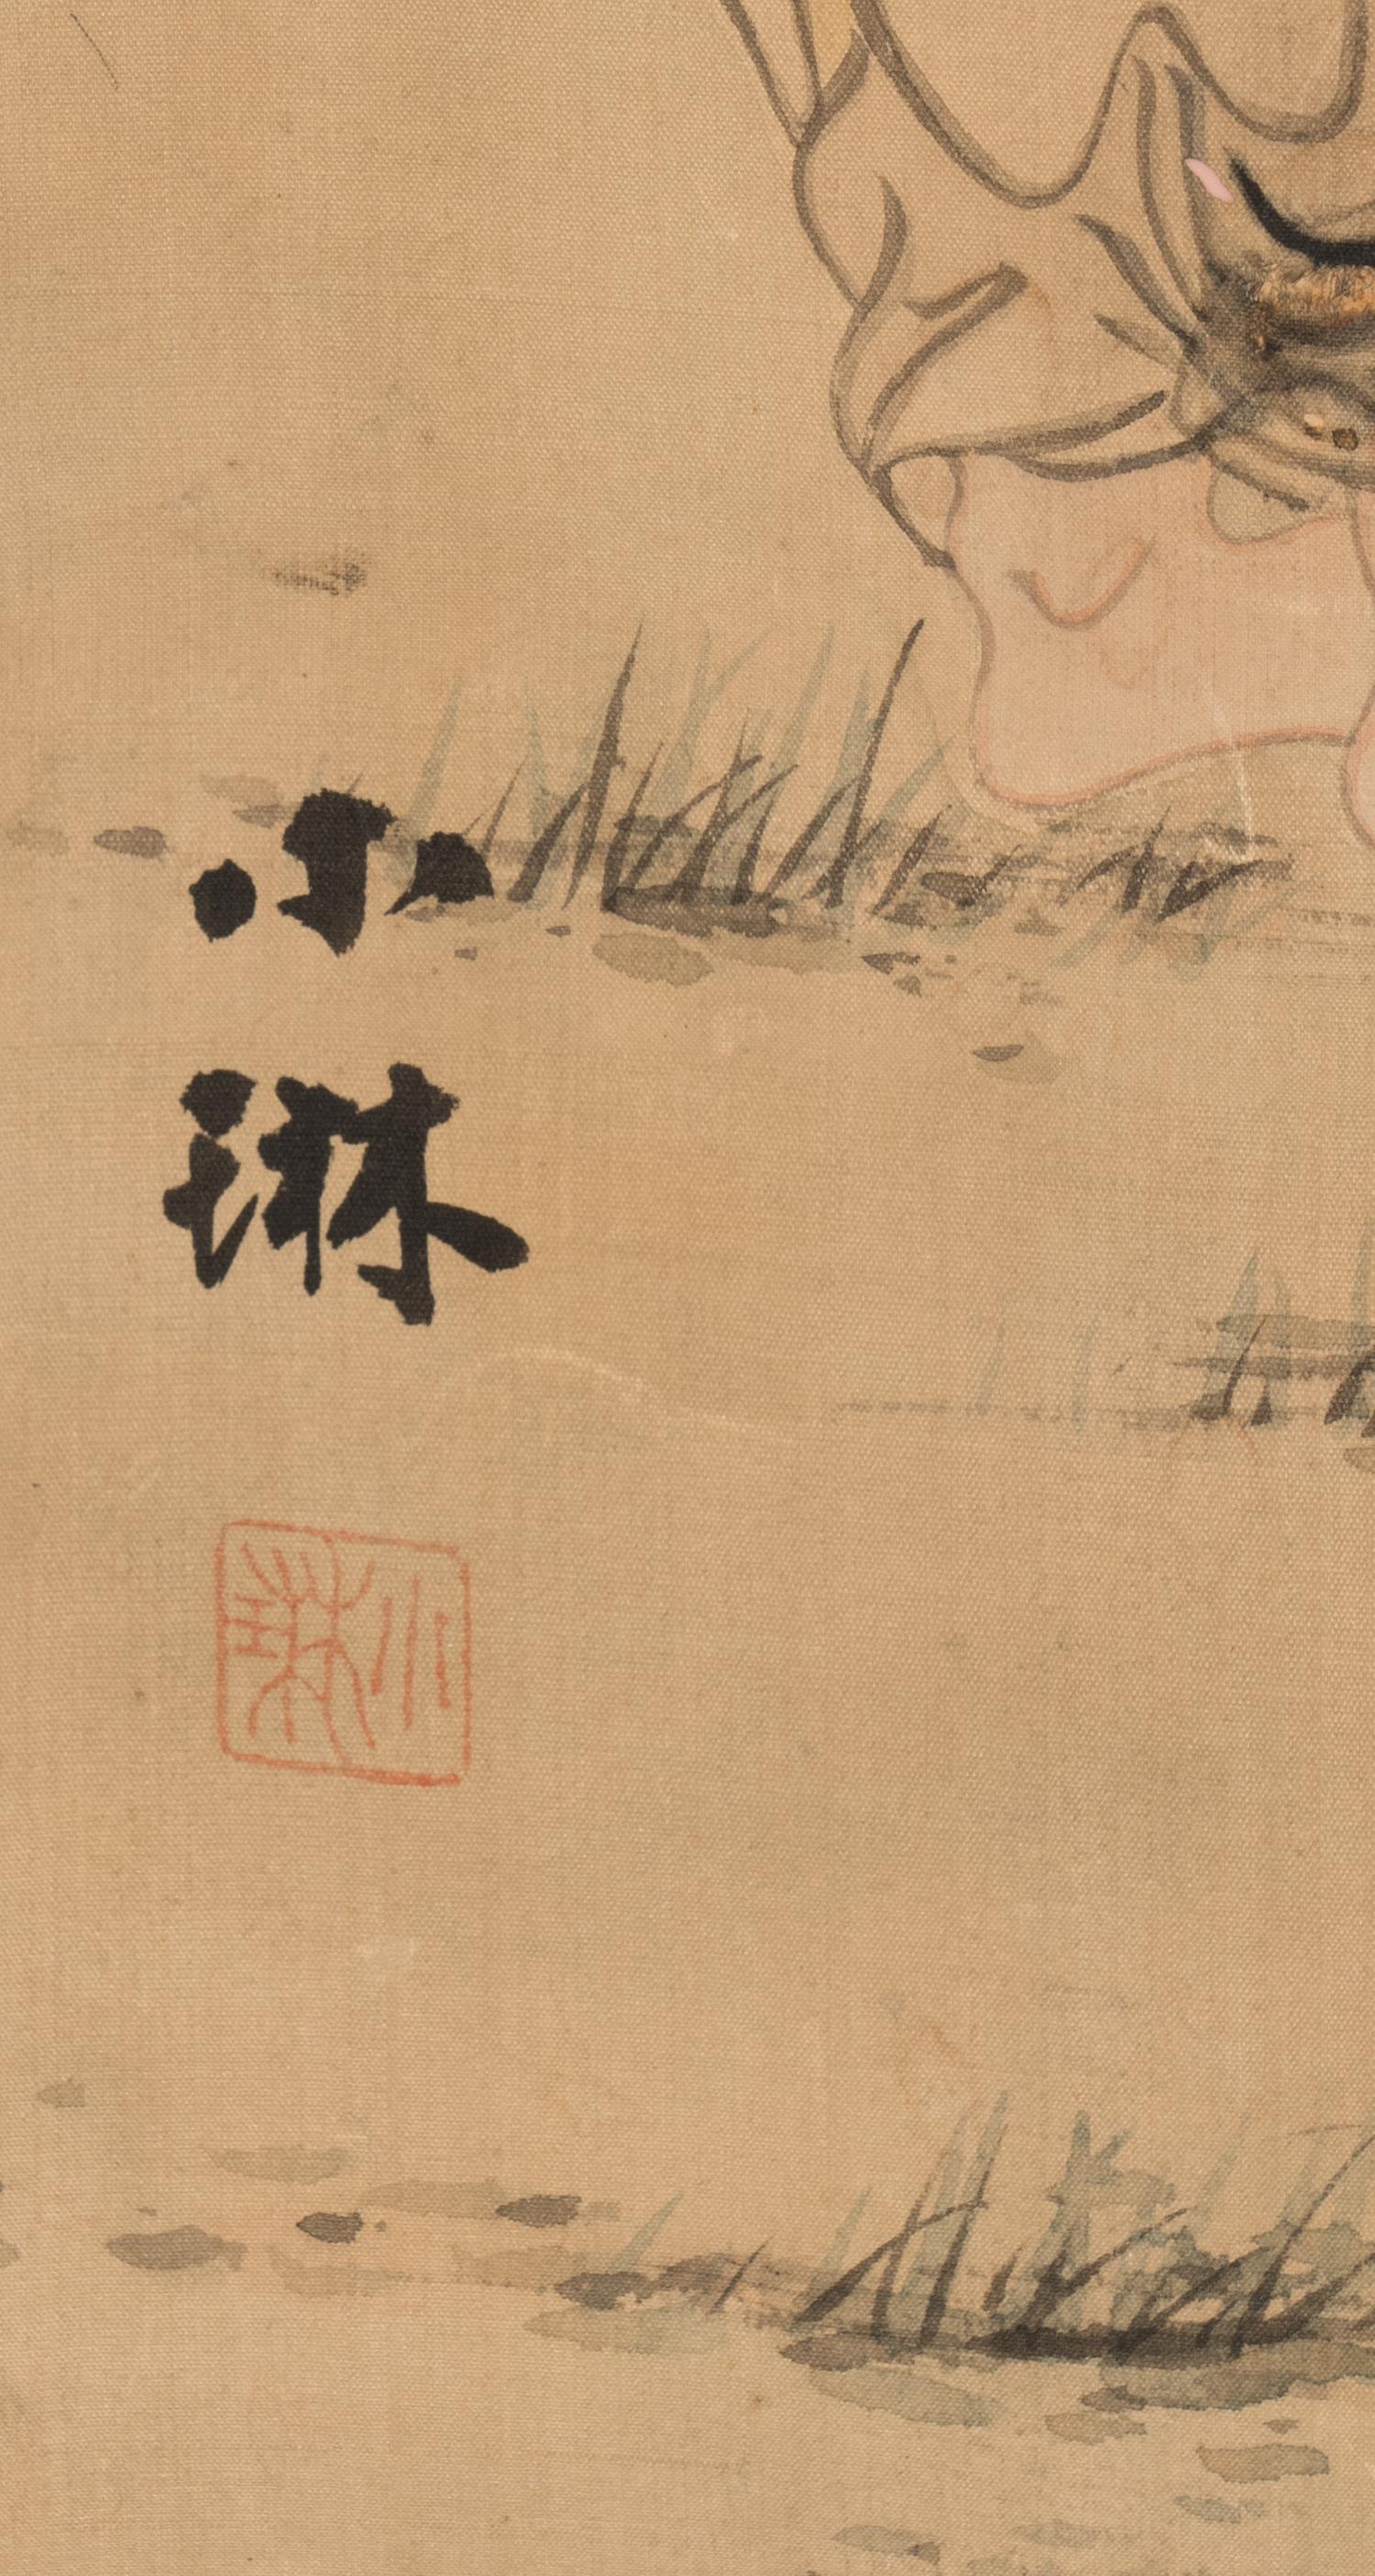 小琳
小琳